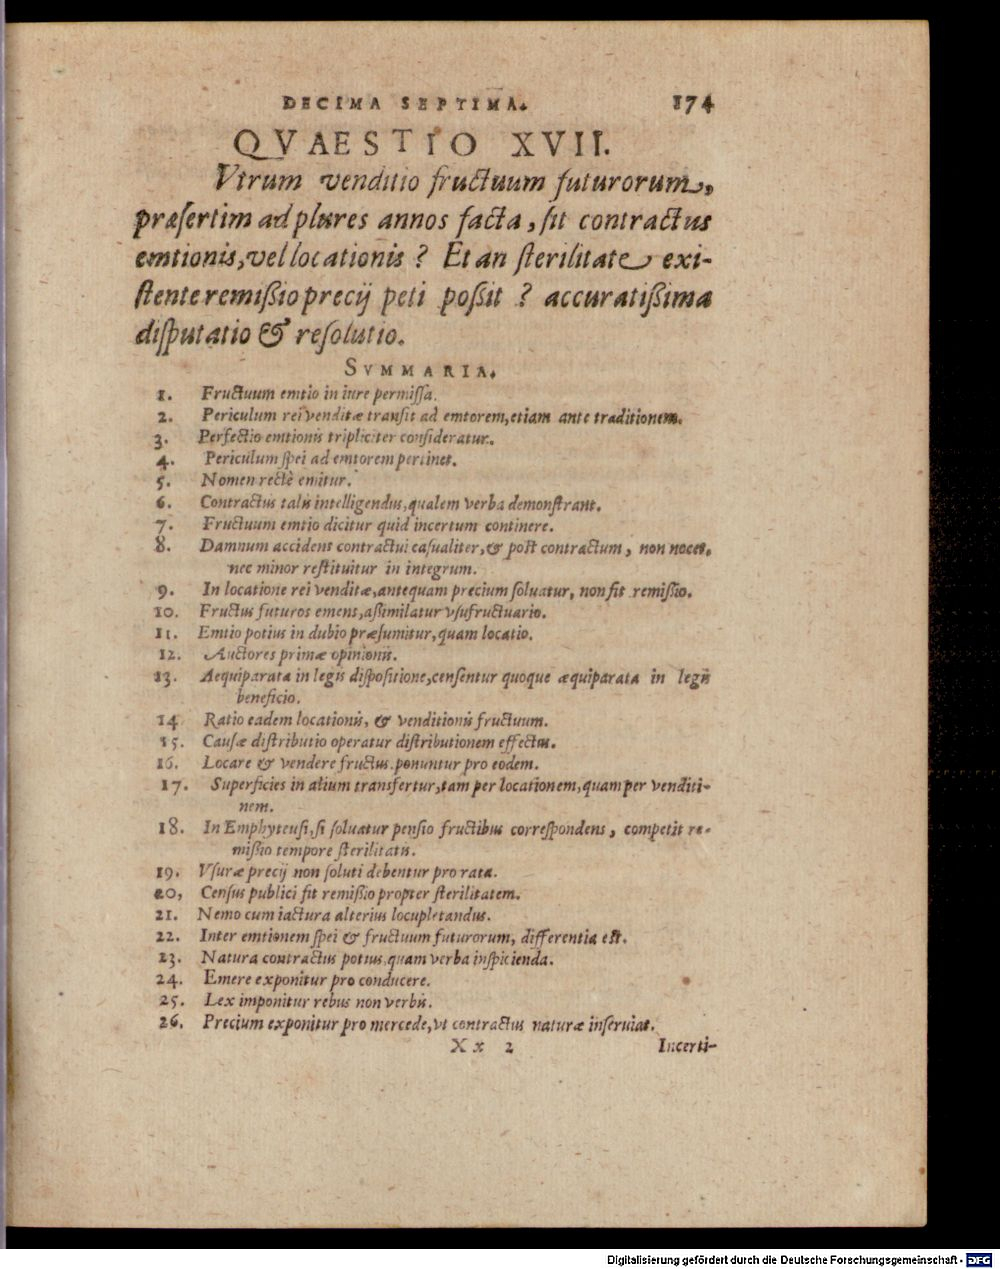 DECIMA SEPTIMA. 174
QVAESTIO XVII.
Vtrum venditio fructuum futurorum,
præſertim ad plures annos facta, ſit contractus
emtionis, vel locationis ? Et an ſterilitate exi-
ſtente remiſsio precij peti poſsit ? accuratiſsima
diſputatio & reſolutio.
SVMMARIA.
1. Fructuum emtio in iure permiſſa.
2. Periculum rei venditæ tranſit ad emtorem, etiam ante traditionem.
3. Perfectio emtionis tripliciter conſideratur.
4. Periculum ſpei ad emtorem pertinet.
5. Nomen rectè emitur.
6. Contractus talis intelligendus, qualem verba demonſtrant.
7. Fructuum emtio dicitur quid incertum continere.
8. Damnum accidens contractui caſualiter, & poſt contractum, non nocet,
nec minor reſtituitur in integrum.
9. In locatione rei venditæ, antequam precium ſoluatur, non fit remiſsio.
10. Fructus futuros emens, aſsimilatur vſufructuario.
11. Emtio potius in dubio præſumitur, quam locatio.
12. Auctores primæ opinionis.
13. Aequiparata in legis diſpoſitione, cenſentur quoque æquiparata in legis
beneficio.
14 Ratio eadem locationis, & venditionis fructuum.
15. Cauſæ diſtributio operatur diſtributionem effectus.
16. Locare & vendere fructus, ponuntur pro eodem.
17. Superficies in alium transfertur, tam per locationem, quam per venditi-
nem.
18. In Emphyteuſi, ſi ſoluatur penſio fructibus correſpondens, competit re-
miſsio tempore ſterilitatis.
19. Vſuræ precij non ſoluti debentur pro rata.
20, Cenſus publici fit remiſsio propter ſterilitatem.
21. Nemo cum iactura alterius locupletandus.
22. Inter emtionem ſpei & fructuum futurorum, differentia eſt.
23. Natura contractus potius, quam verba inſpicienda.
24. Emere exponitur pro conducere.
25. Lex imponitur rebus non verbis.
26. Precium exponitur pro mercede, vt contractus naturæ inſeruiat.
Xx 2 Incerti-
Digitalisierung gefördert durch die Deutsche Forschungsgemeinschaft - DFG